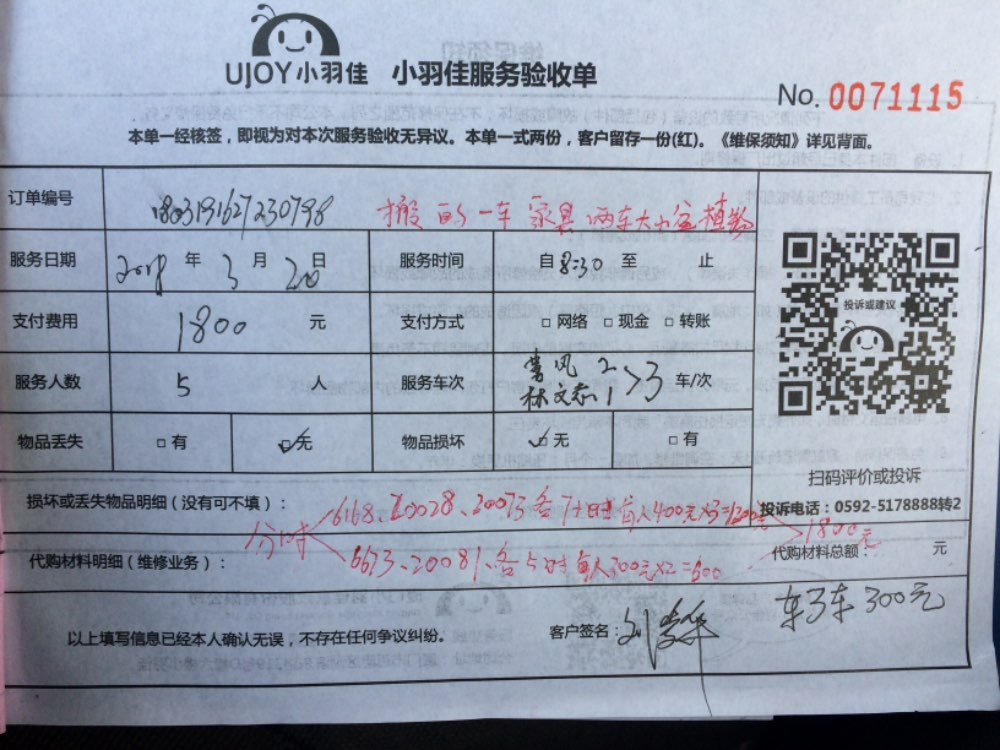 UJOY小羽佳 小羽佳服务验收单
No. 0071115
本单一经核签，即视为对本次服务验收无异议。本单一式两份，客户留存一份(红)。《维保须知》详见背面。
订单编号 1803191627230798 搬 一车 家具 两车大小盆植物
服务日期 2018 年 3 月 20 日 服务时间 自 8:30 至 止
投诉或建议
支付费用 1800 元 支付方式 □ 网络 □ 现金 □ 转账
服务人数 5 人 服务车次 风 2 林文志 1 >3 车/次
物品丢失 □ 有 ☑ 无 物品损坏 ☑ 无 □ 有
扫码评价或投诉
投诉电话：0592-5178888转2
损坏或丢失物品明细（没有可不填）： 6168、20028、20073各7小时每人400元×3=1200元
分时 >1800元
代购材料明细（维修业务）： 6613、20081、各5小时每人300元×2=600 代购材料总额： 元
以上填写信息已经本人确认无误，不存在任何争议纠纷。 客户签名： 300元